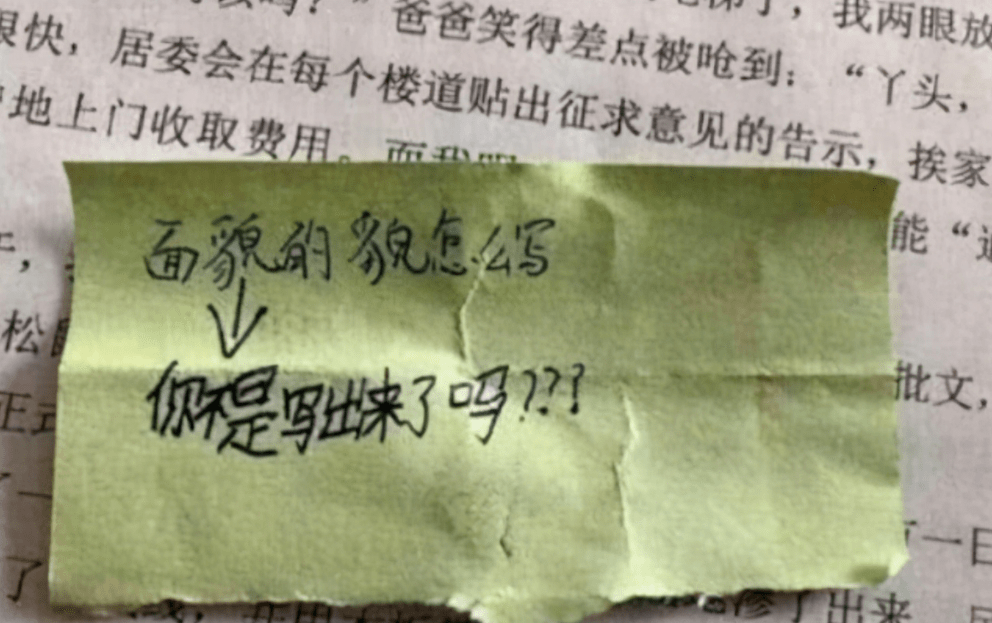 爸爸笑得差点被呛到：“丫头，我两眼放
很快，居委会在每个楼道贴出征求意见的告示，挨家
地上门收取费用。而我
能“
面貌的貌怎么写
松
批文，
你不是写出来了吗???
正式
了一
一日
了
了出来